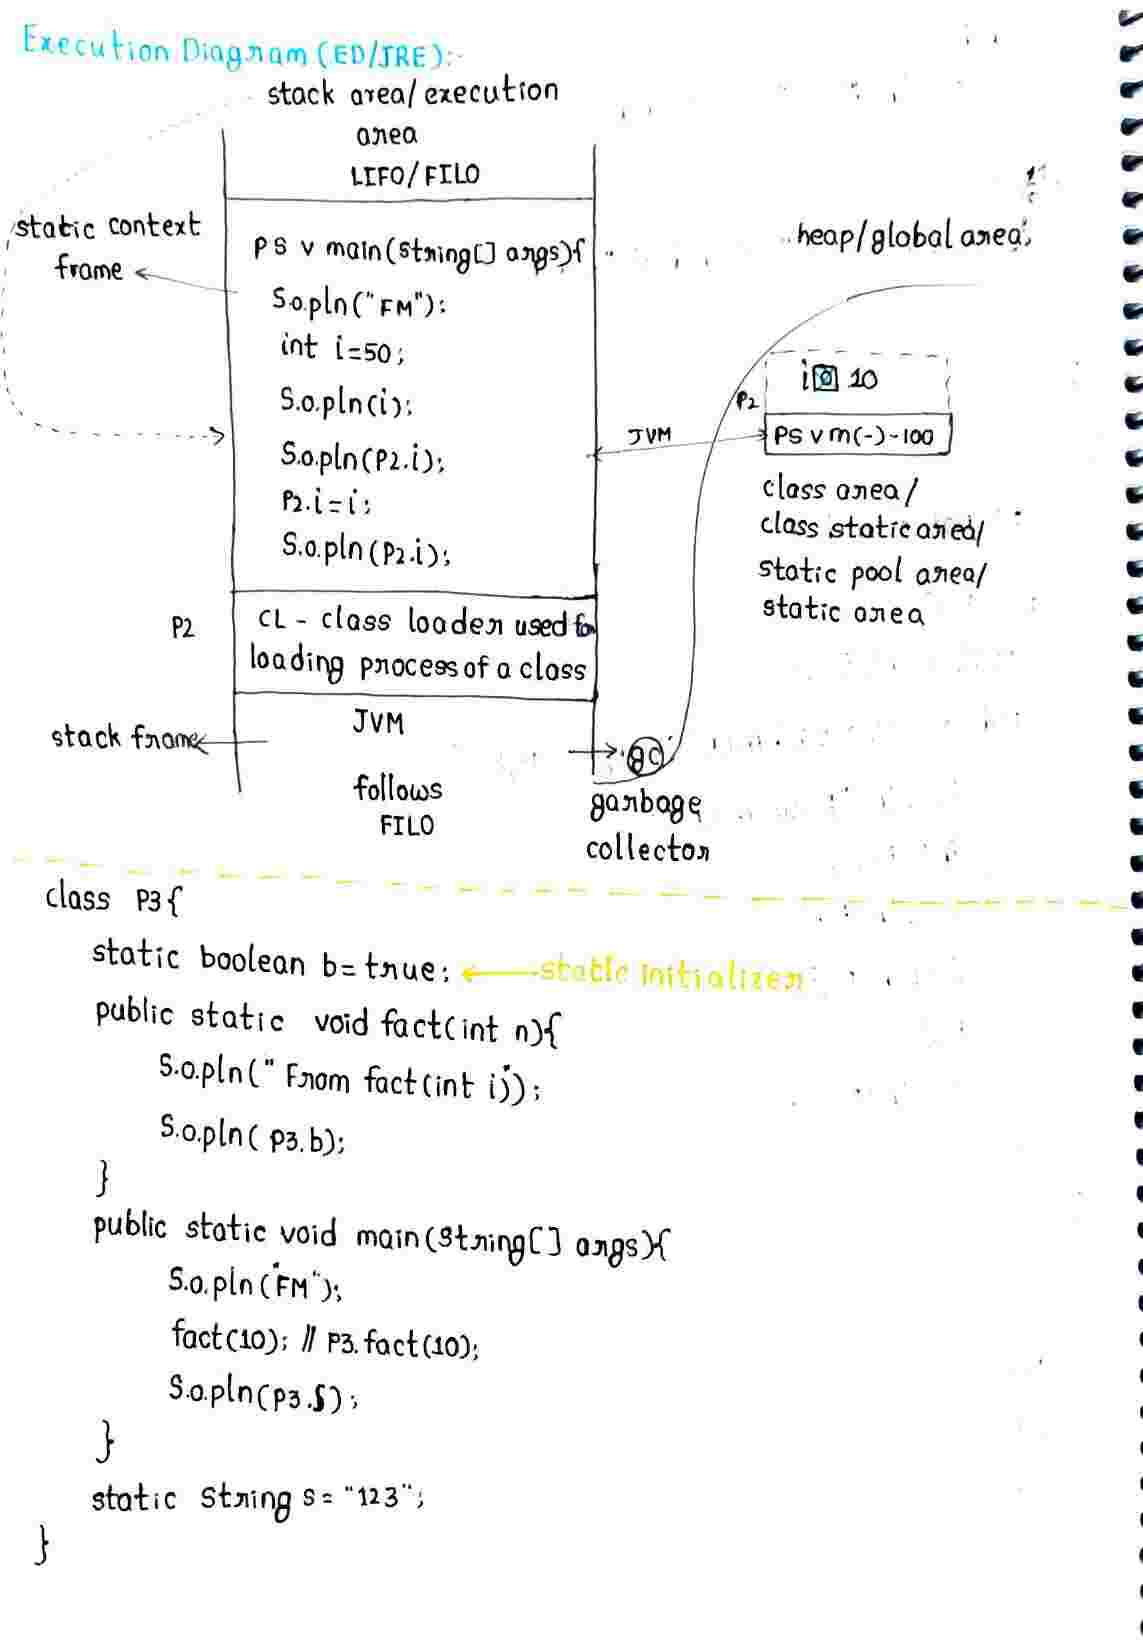 Execution Diagram (ED/JRE):-
stack area/execution
area
LIFO/FILO
static context
frame
PS v main(String[] args){
S.o.pln("FM");
int i=50;
S.o.pln(i);
S.o.pln(P2.i);
P2.i=i;
S.o.pln(P2.i);
heap/global area;
i 0 10
P2
JVM
PS v m(-)-100
class area/
class static area/
static pool area/
static area
P2
CL - class loader used for
loading process of a class
stack frame
JVM
follows
FILO
gc
garbage
collector
class P3{
static boolean b=true; static initializer
public static void fact(int n){
S.o.pln("From fact(int i)");
S.o.pln(P3.b);
}
public static void main(String[] args){
S.o.pln("FM");
fact(10); // P3.fact(10);
S.o.pln(P3.S);
}
static String s="123";
}